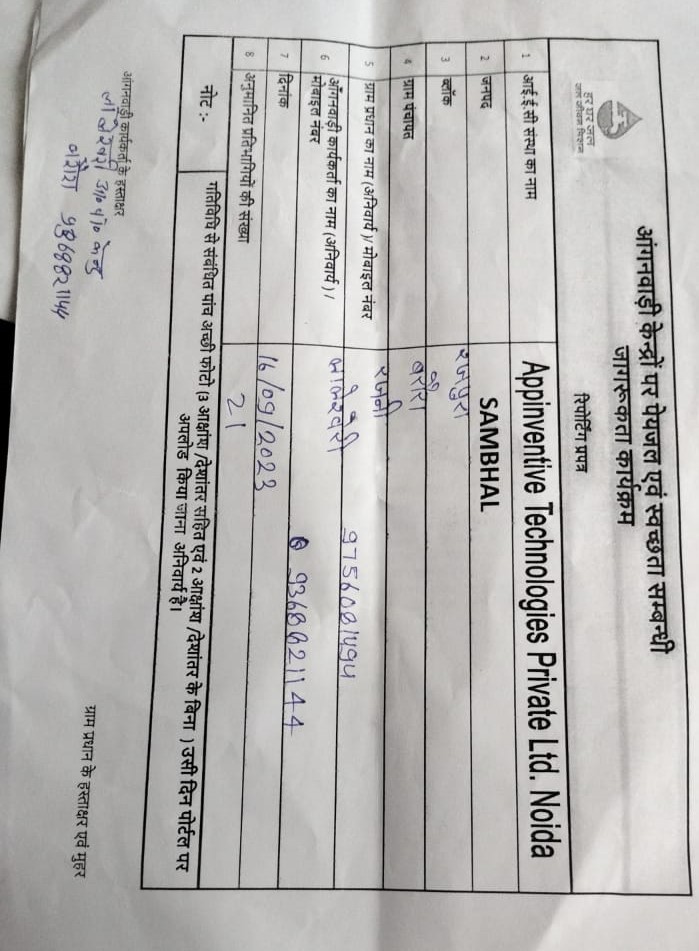 आंगनवाड़ी केन्द्रों पर पेयजल एवं स्वच्छता सम्बन्धी
जागरूकता कार्यक्रम
हर घर जल
जल जीवन मिशन
रिपोर्टिंग प्रपत्र
1 आई.ई.सी संस्था का नाम Appinventive Technologies Private Ltd. Noida
2 जनपद SAMBHAL
3 ब्लॉक रजपुरा
4 ग्राम पंचायत
5 ग्राम प्रधान का नाम (अनिवार्य )/ मोबाइल नंबर रजनी 9756081494
6 आँगनवाड़ी कार्यकर्ता का नाम (अनिवार्य ) /
मोबाइल नंबर 9368621144
7 दिनांक 16/09/2023
8 अनुमानित प्रतिभागियों की संख्या 21
नोट :- गतिविधि से संबंधित पांच अच्छी फोटो (3 आक्षांश /देशांतर सहित एवं 2 आक्षांश /देशांतर के बिना ) उसी दिन पोर्टल पर
अपलोड किया जाना अनिवार्य है।
आंगनवाड़ी कार्यकर्ता के हस्ताक्षर
ग्राम प्रधान के हस्ताक्षर एवं मुहर